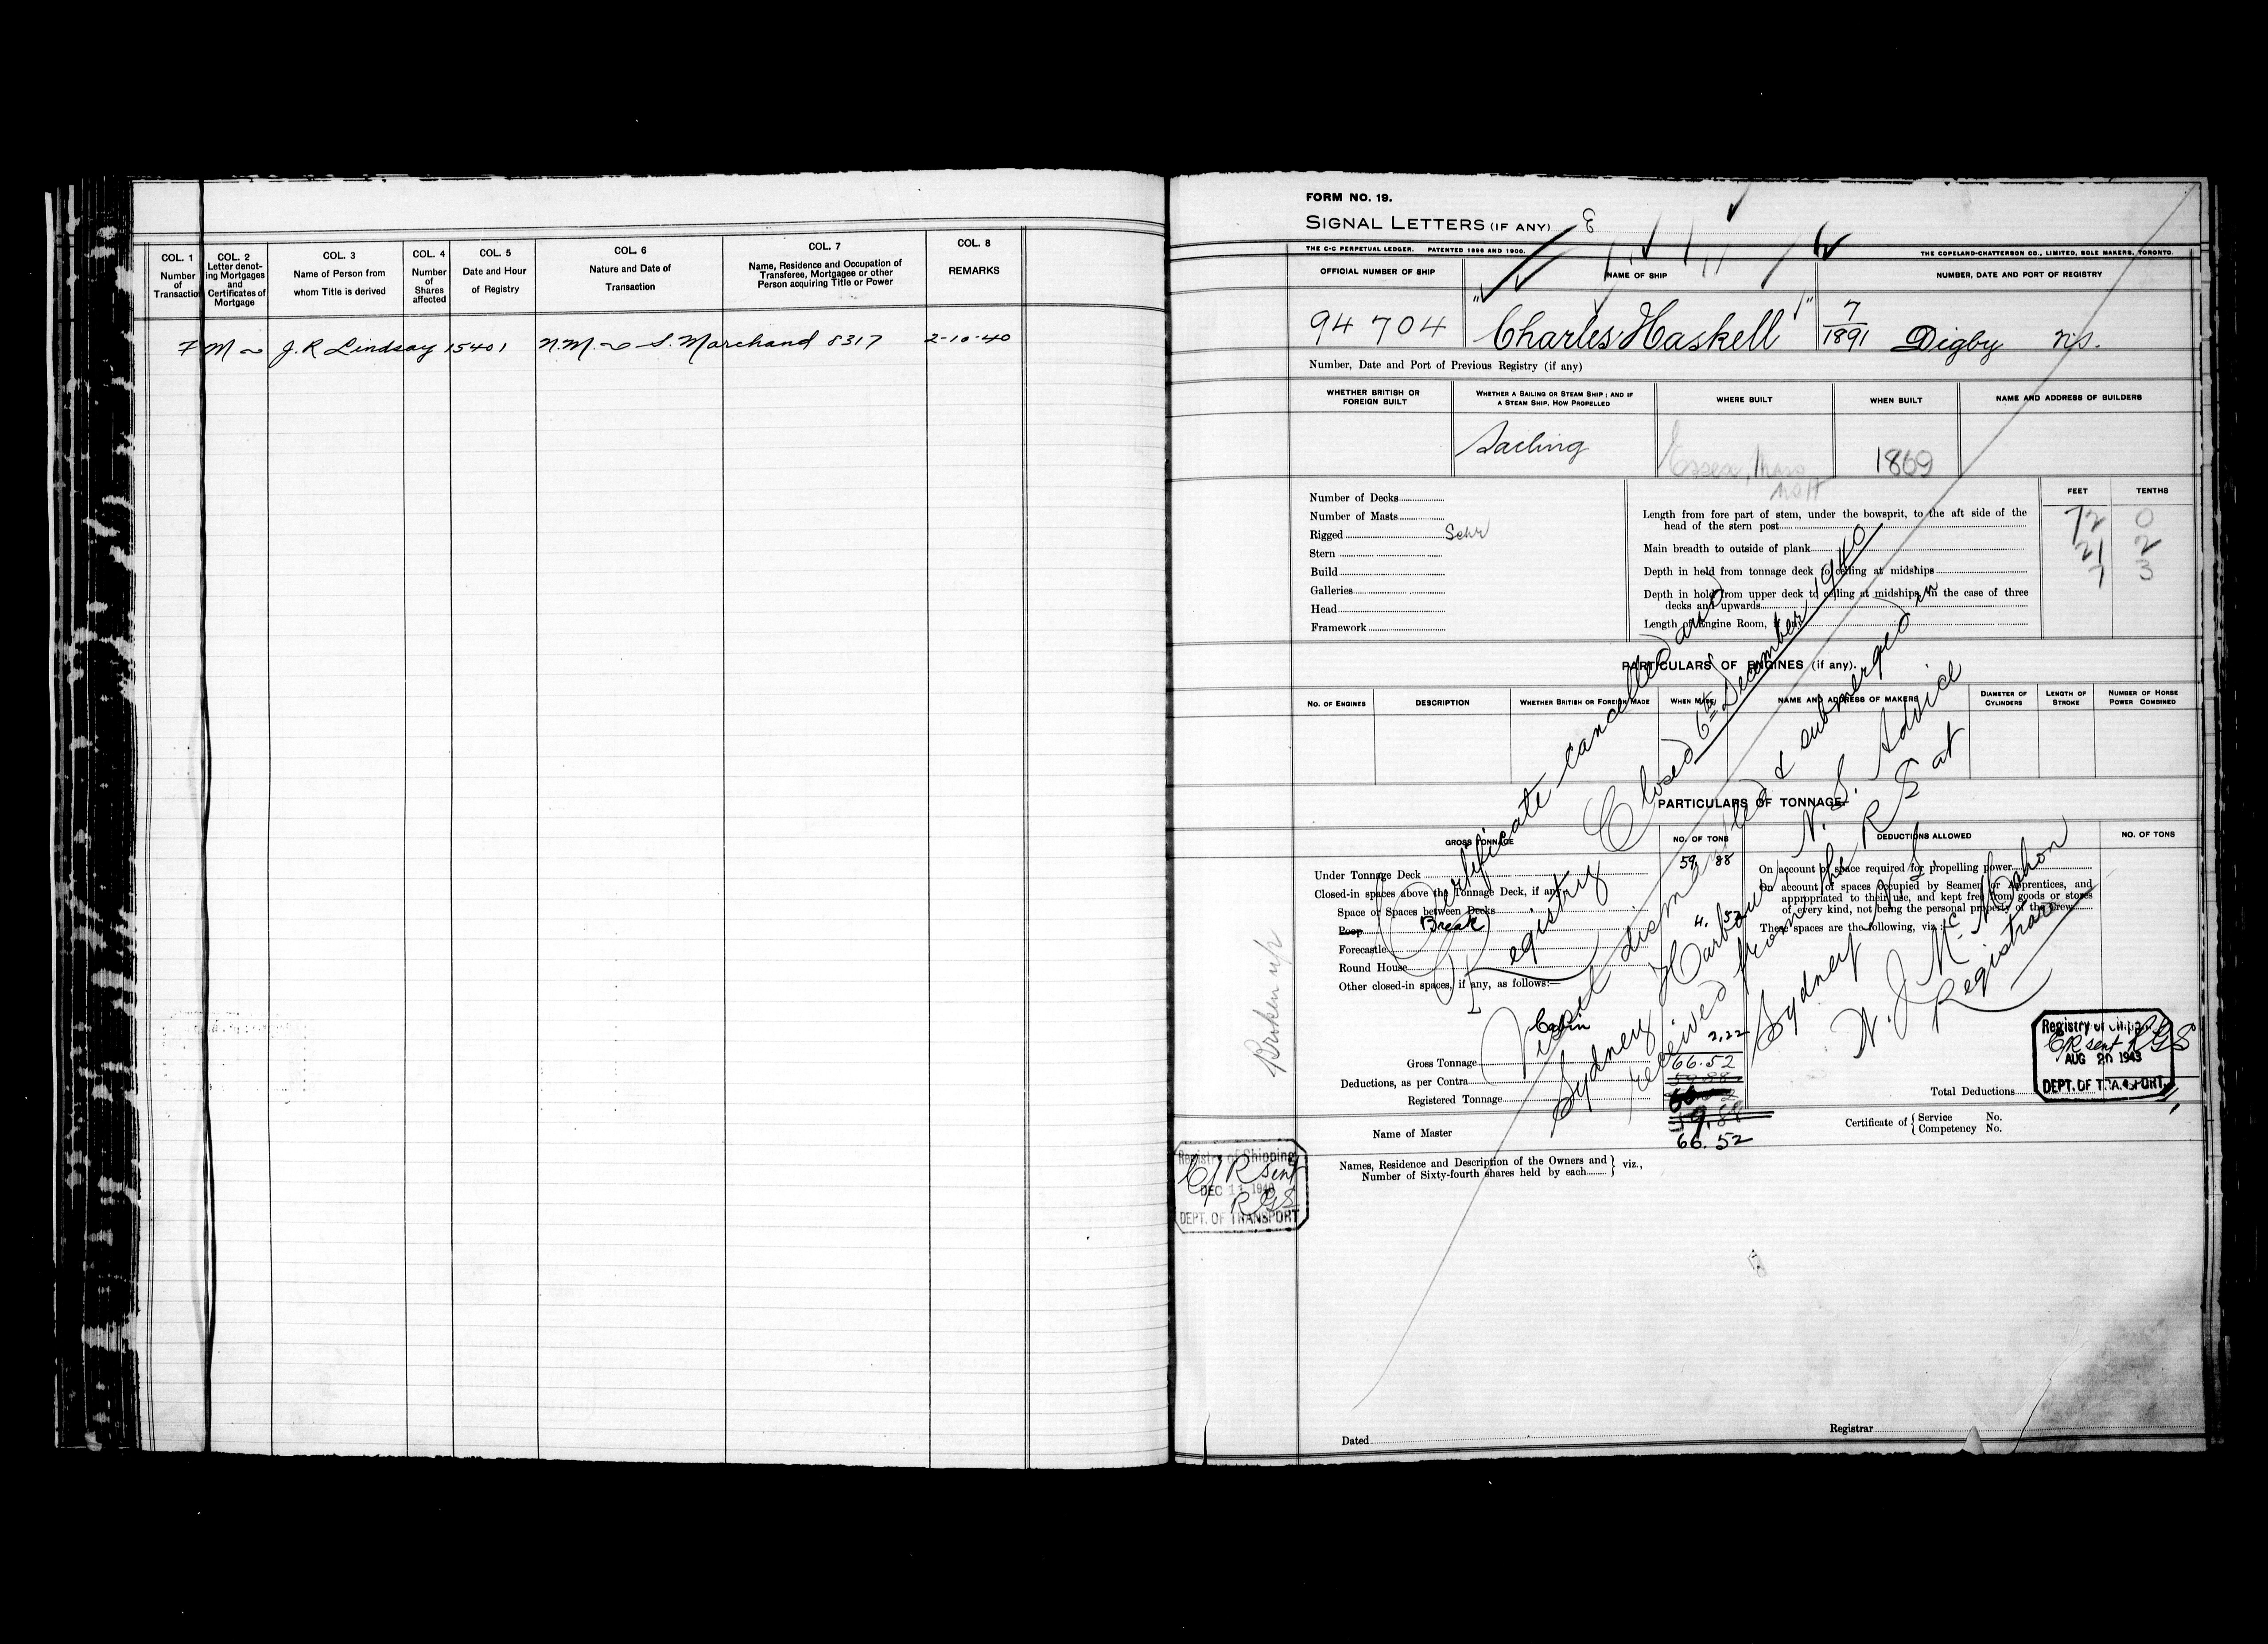 COL. 1
Number
of
Transaction
COL. 2
Letter denot-
ing Mortgages
and
Certificates of
Mortgage
COL. 3
Name of Person from
whom Title is derived
COL. 4
Number
of
Shares
affected
COL. 5
Date and Hour
of Registry
COL. 6
Nature and Date of
Transaction
COL. 7
Name, Residence and Occupation of
Transferee, Mortgagee or other
Person acquiring Title or Power
COL. 8
REMARKS
7 M J. R Lindsay 15401 N.M. S. Marchand 8317 2-10-40
FORM NO. 19.
SIGNAL LETTERS (IF ANY)
THE C-C PERPETUAL LEDGER. PATENTED 1896 AND 1900.
THE COPELAND-CHATTERSON CO., LIMITED, SOLE MAKERS, TORONTO.
OFFICIAL NUMBER OF SHIP
NAME OF SHIP
NUMBER, DATE AND PORT OF REGISTRY
94 704
"Charles Haskell"
7/1891 Digby N.S.
Number, Date and Port of Previous Registry (if any)
WHETHER BRITISH OR
FOREIGN BUILT
WHETHER A SAILING OR STEAM SHIP; AND IF
A STEAM SHIP, HOW PROPELLED
WHERE BUILT
WHEN BUILT
NAME AND ADDRESS OF BUILDERS
Sailing
Essex, Mass
1869
Number of Decks
Number of Masts
Rigged Schr
Stern
Build
Galleries
Head
Framework
FEET
TENTHS
Length from fore part of stem, under the bowsprit, to the aft side of the
head of the stern post
72 0
Main breadth to outside of plank
21 2
Depth in hold from tonnage deck to ceiling at midships
7 3
Depth in hold from upper deck to ceiling at midships, in the case of three
decks and upwards
Length of Engine Room, if any
PARTICULARS OF ENGINES (if any).
NO. OF ENGINES
DESCRIPTION
WHETHER BRITISH OR FOREIGN MADE
WHEN MADE
NAME AND ADDRESS OF MAKERS
DIAMETER OF
CYLINDERS
LENGTH OF
STROKE
NUMBER OF HORSE
POWER COMBINED
PARTICULARS OF TONNAGE
GROSS TONNAGE
NO. OF TONS
DEDUCTIONS ALLOWED
NO. OF TONS
Under Tonnage Deck 59 88
Closed-in spaces above the Tonnage Deck, if any
Space or Spaces between Decks
Poop Break 4.
Forecastle
Round House
Other closed-in spaces, if any, as follows:—
Cabin 2.22
Gross Tonnage 66.52
Deductions, as per Contra
Registered Tonnage
66.52
On account of space required for propelling power
On account of spaces occupied by Seamen or Apprentices, and
appropriated to their use, and kept free from goods or stores
of every kind, not being the personal property of the Crew
These spaces are the following, viz.:
Total Deductions
Certificate cancelled and
Registry Closed 6th December, 1940
Vessel dismantled & submerged in
Sydney Harbour, N. S. Advice
received from the R S at
Sydney N S
N. J. McMahon
Registrar
Broken up
Registry of Shipping
C/R sent RGS
AUG 20 1943
DEPT. OF TRANSPORT
Name of Master
Certificate of { Service No.
Competency No.
Names, Residence and Description of the Owners and
Number of Sixty-fourth shares held by each } viz.,
Registry of Shipping
C/R sent
DEC 11 1940
RGS
DEPT. OF TRANSPORT
Dated
Registrar